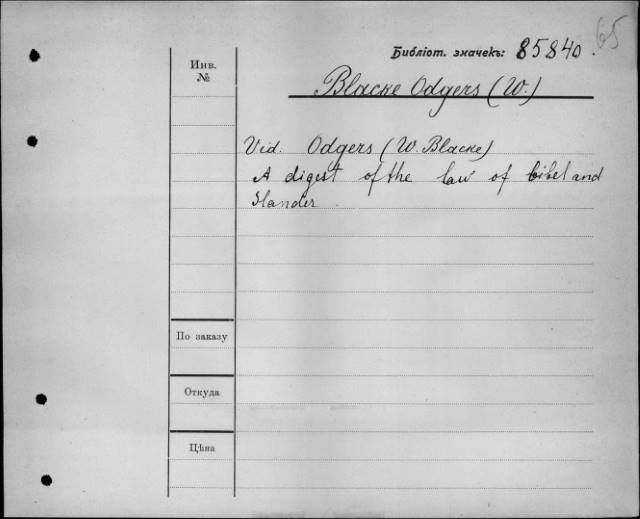 65
Библіот. значекъ: 85840.
Инв.
№
Blacke Odgers (W.)
Vid. Odgers (W. Blacke)
A digest of the law of libel and
slander.
По заказу
Откуда
Цѣна